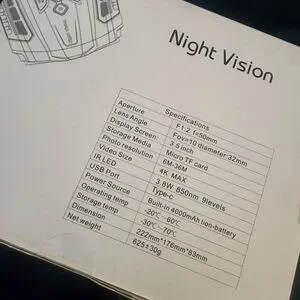 Night Vision
Specifications
Aperture F1.2 f=50mm
Lens Angle Fov=10 diameter:32mm
Display Screen: 3.5 inch
Storage Media Micro TF card
Photo resolution 6M-36M
Video Size 4K MAX
IR LED 3.8W 850nm 9levels
USB Port Type-c
Power Source Built-in 4000mAh lion-battery
Operating temp -20℃ ~ 60℃
Storage temp -30℃ ~ 70℃
Dimension 222mm*176mm*83mm
Net weight 625±30g